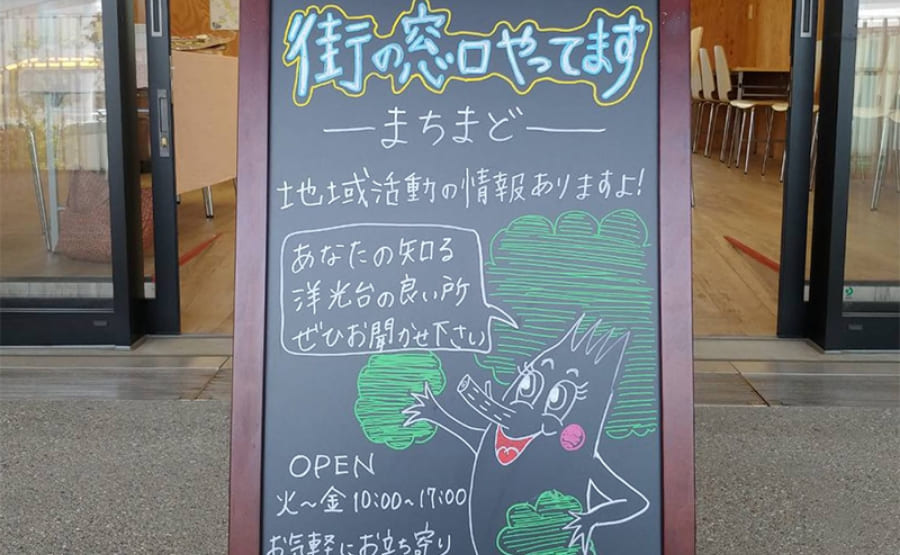 街の窓口やってます
―まちまど―
地域活動の情報ありますよ!
あなたの知る
洋光台の良い所
ぜひお聞かせ下さい
OPEN
火～金 10:00～17:00
お気軽にお立ち寄り